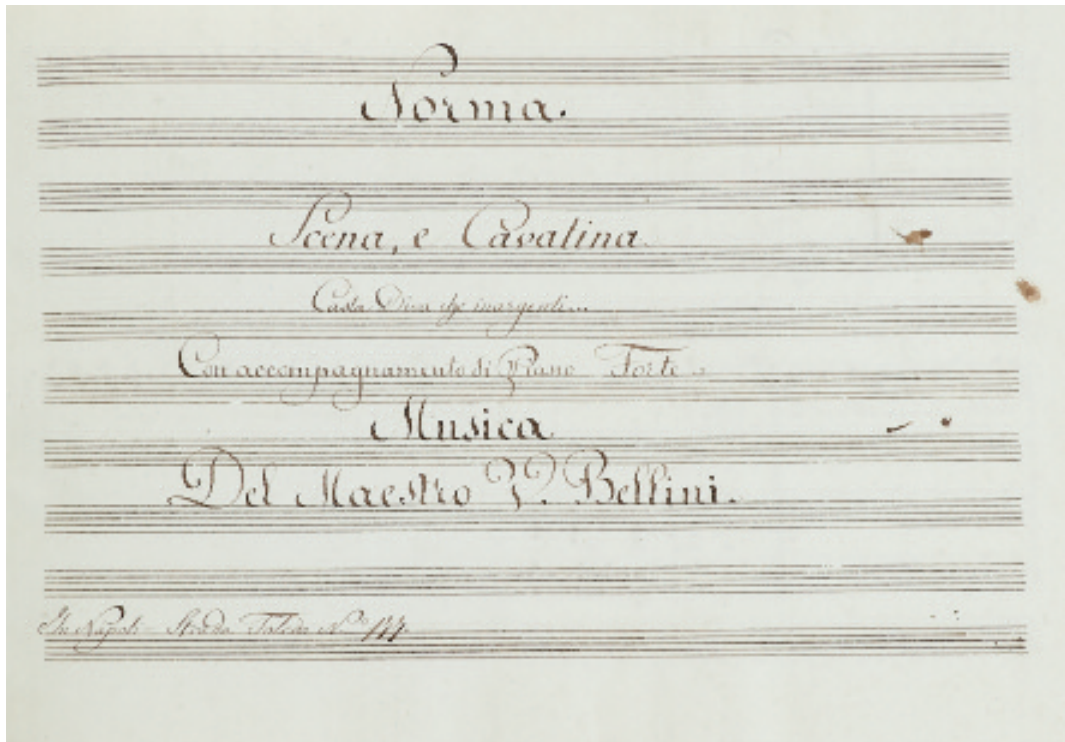 Norma.
Scena, e Cavatina
Casta Diva che inargenti...
Con accompagnamento di Piano Forte
Musica
Del Maestro V. Bellini.
In Napoli Strada Toledo N.º 177.